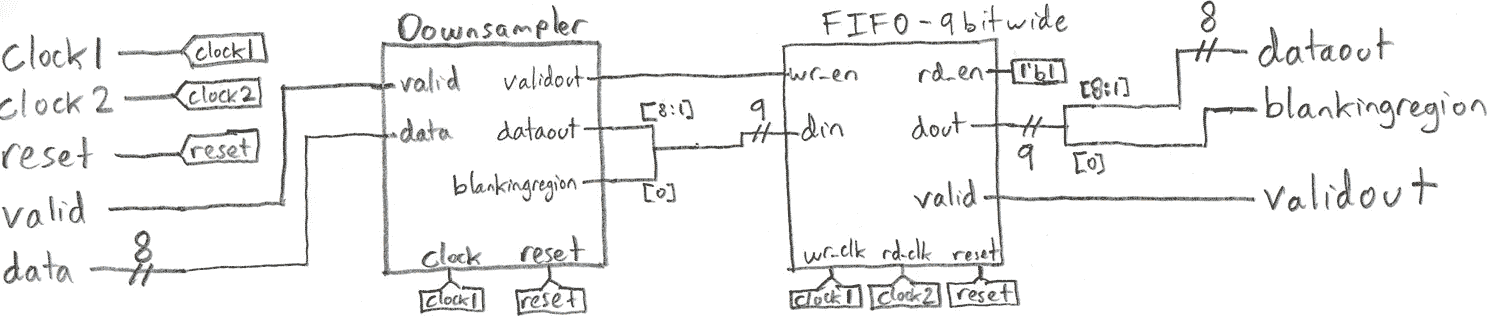 clock1
clock1
clock2
clock2
reset
reset
valid
data
8
Downsampler
valid
data
validout
dataout
blankingregion
clock
reset
clock1
reset
[8:1]
[0]
9
FIFO-9bitwide
wr_en
din
rd_en
dout
valid
wr_clk
rd_clk
reset
clock1
clock2
reset
1'b1
9
[8:1]
[0]
8
dataout
blankingregion
validout